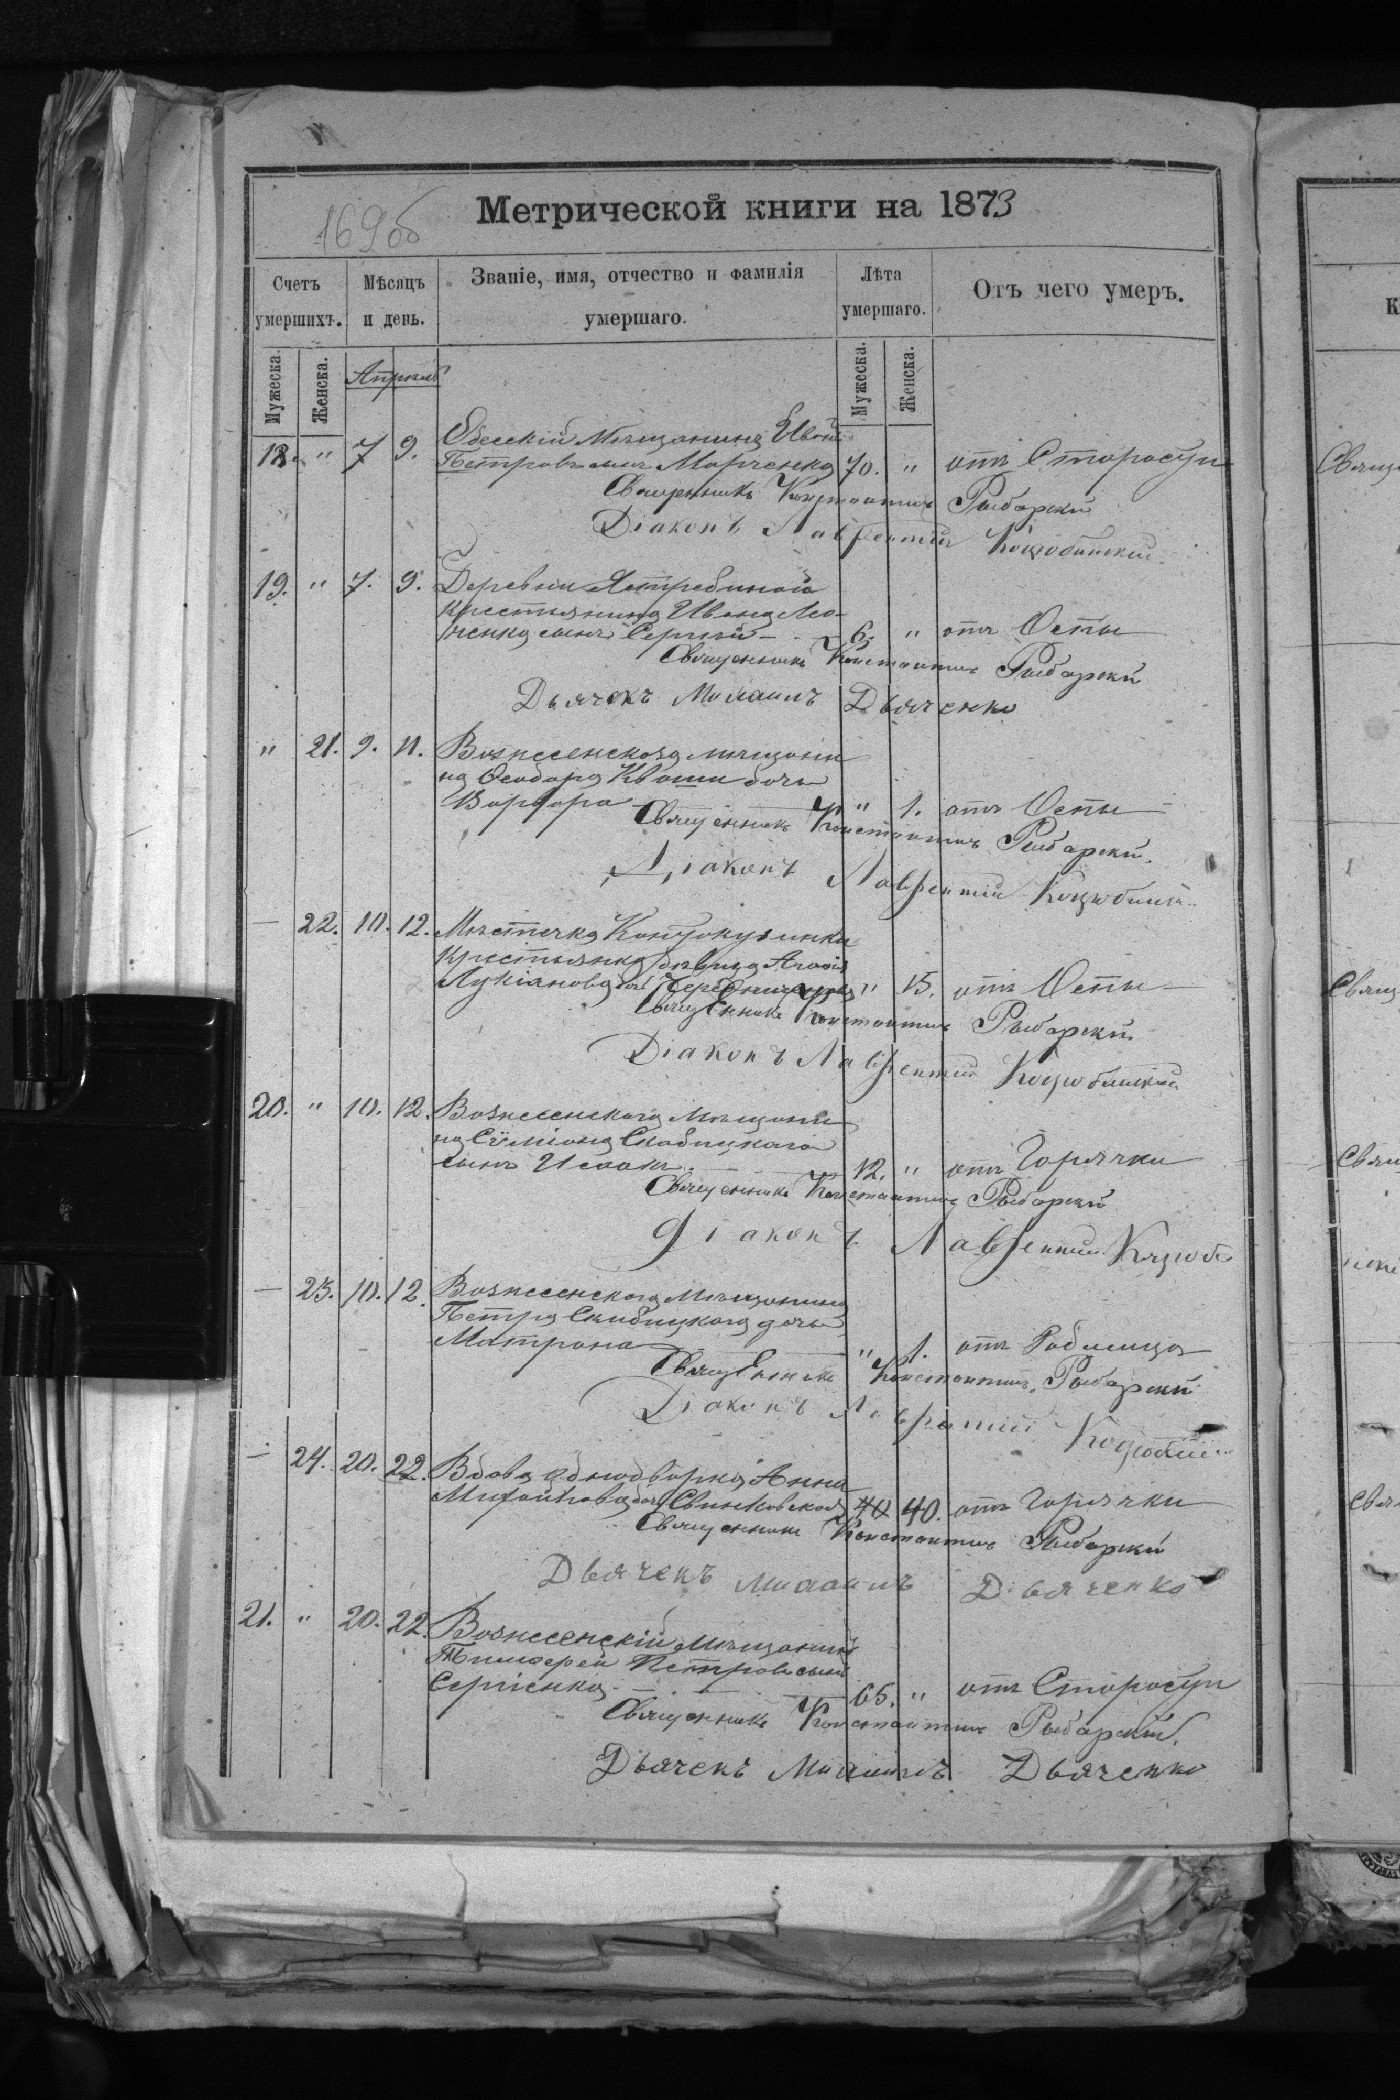 169об
Метрической книги на 1873
Счетъ умершихъ. Мѣсяцъ и день. Званіе, имя, отчество и фамилія умершаго. Лѣта умершаго. Отъ чего умеръ.
Мужеска. Женска. Апрѣль Мужеска. Женска.
18. " 7 9. Одесскій Мѣщанинъ Иванъ
Петровъ сынъ Марченко 70. " отъ Старости
Священникъ Константинъ Рыбарскій
Діаконъ Лаврентій Коцюбинскій
19. " 7. 9. Деревни Ястребиной
крестьянина Ивана
сынъ Сергѣй 6. " отъ Оспы
Священникъ Константинъ Рыбарскій
Дьячекъ Михаилъ Дьяченко
" 21. 9. 11. Вознесенскаго мѣщани
на Ѳеодора Кваши дочь
Варвара " 1. отъ Оспы
Священникъ Константинъ Рыбарскій.
Діаконъ Лаврентій Коцюбинскій
— 22. 10. 12. Мѣстечка Кантокузинки
Крестьянка дѣвица
Лукіанова дочь " 15. отъ Оспы
Священникъ Константинъ Рыбарскій
Діаконъ Лаврентій Коцюбинскій
20. " 10. 12. Вознесенскаго Мѣщани
на Сѷмеона Скабицкаго
сынъ Исаакъ 12. " отъ Горячки
Священникъ Константинъ Рыбарскій
Діаконъ Лаврентій Коцюб
— 23. 10. 12. Вознесенскаго Мѣщанина
Петра Скибицкаго дочь
Матрона " 1. отъ Родимца
Священникъ Константинъ Рыбарскій
Діаконъ Лаврентій Коцюбин
— 24. 20. 22. Вдова однодворка Анна
Михайлова дочь Свинковская 40 40. отъ Горячки
Священникъ Константинъ Рыбарскій
Дьячекъ Михаилъ Дьяченко
21. " 20. 22. Вознесенскій Мѣщанинъ
Тимоѳей Петровъ сынъ
Сергіенко 65. " отъ Старости
Священникъ Константинъ Рыбарскій.
Дьячекъ Михаилъ Дьяченко